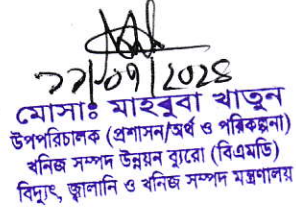 ২১/০৭/২০২৪
মোসাঃ মাহবুবা খাতুন
উপপরিচালক (প্রশাসন/অর্থ ও পরিকল্পনা)
খনিজ সম্পদ উন্নয়ন ব্যুরো (বিএমডি)
বিদ্যুৎ, জ্বালানি ও খনিজ সম্পদ মন্ত্রণালয়